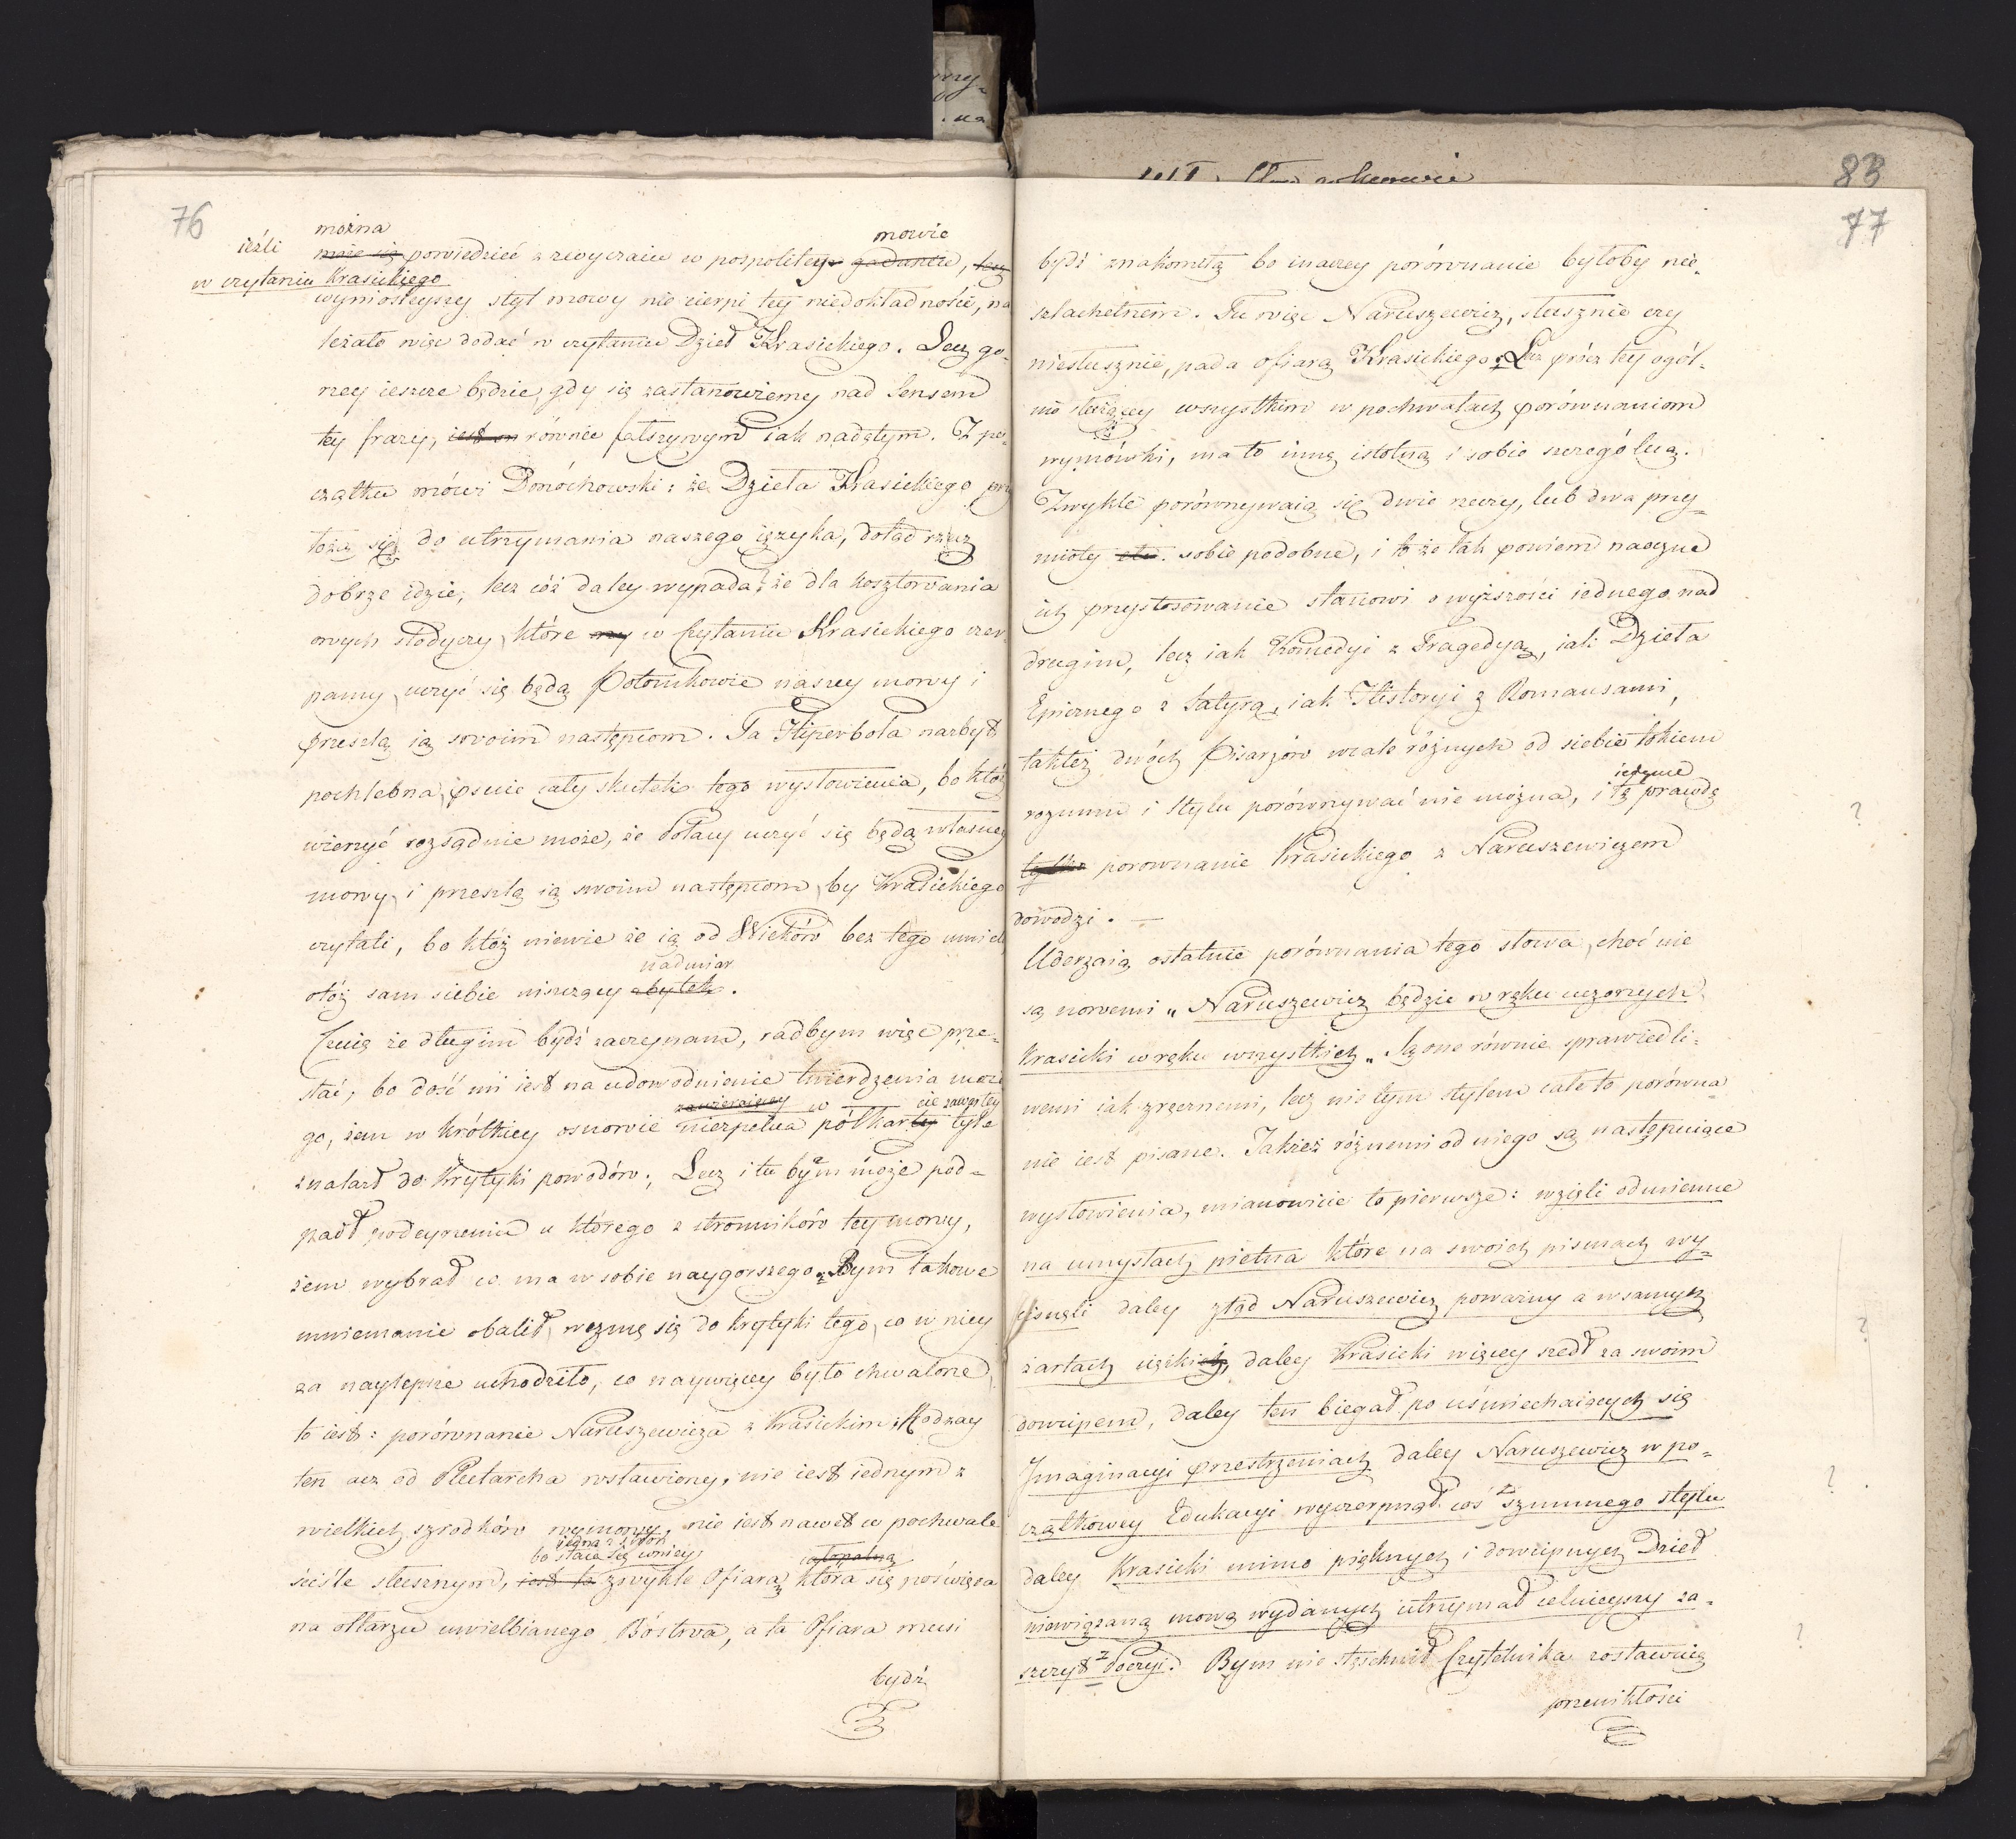 76
można
mowie
ieźli może się powiedzieć zwyczaiu w pospolitey gadaniu, lecz
w czytaniu Krasickiego
wyniosłeyszy styl mowy nie cierpi tey niedokładności, na
leżało więc dodać w czytaniu Dzieł Krasickiego. Lecz go-
rzey ieszcze będzie, gdy się zastanowiemy nad Sensem
tey frazy, iest on równie fałszywym iak nadętym. Z po-
czątku mówi Dmóchowski: że Dzieła Krasickiego przy
łożą się do utrzymania naszego ięzyka, dotąd rzecz
dobrze idzie, lecz cóż daley wypada? że dla kosztowania
owych słodyczy, które my w Czytaniu Krasickiego czer
pamy, uczyć się będą Potomkowie naszey mowy i
prześlą ią swoim następcom. Ta Hiperbola nazbyt
pochlebna, psuie cały skutek tego wysłowienia, bo któż
wierzyć rozsądnie może, że Polacy uczyć się będą własney
mowy, i prześlą ią swoim następcom, by Krasickiego
czytali, bo któż niewie że ią od Wieków bez tego umieli
nadmiar
otóż sam siebie niszczący zbytek.
Czuię że długim bydź zaczynam, radbym więc prze-
stać, bo dość mi iest na udowodnienie twierdzenia moie
zawieraiącey w cie zawartey
go, żem w krótkiey osnowie niezpełna półkarty tyle
znalazł do Krytyki powodów; Lecz i tu bym może pod-
padł podeyrzeniu u którego z stronników tey mowy,
żem wybrał co ma w sobie naygorszego. Bym takowe
mniemanie obalił, wezmę się do krytyki tego, co w niey
za naylepsze uchodziło, co naywięcey było chwalone,
to iest: porównanie Naruszewicza z Krasickim. Rodzay
ten acz od Plutarcha wsławiony, nie iest iednym z
wielkich szrodków wymowy, nie iest nawet w pochwale
iedna z stron
bo staie się w niey całopalną
ściśle słusznym, iest to zwykle Ofiarą która się poświęca
na ołtarzu uwielbianego Bóstwa, a ta Ofiara musi
bydź
83
77
bydź znakomitą bo inaczey porównanie byłoby nie-
szlachetnem. Tu więc Naruszewicz, słusznie czy
niesłusznie, pada ofiarą Krasickiego. Lecz prócz tey ogól-
nie służącey wszystkim w pochwałach porównaniom
wymówki, ma to inną istotną i sobie szczególną.
Zwykle porównywaią się dwie rzeczy, lub dwa przy-
mioty etc. sobie podobne, i to że tak powiem naoczne
ich przystosowanie stanowi o wyższości iednego nad
drugim, lecz iak Komedyi z Tragedyą, iak Dzieła
Epicznego z Satyrą, iak Historyi z Romansami,
takteż dwóch Pisarzów wcale różnych od siebie tokiem
iedynie
rozumu i Stylu porównywać nie można, i tę prawdę
tylko porownanie Krasickiego z Naruszewiczem
dowodzi. —
Uderzaią ostatnie porównania tego słowa, choć nie
są nowemi „Naruszewicz będzie w ręku uczonych
Krasicki w ręku wszystkich„ Są one równie sprawiedli-
wemi iak zręcznemi, lecz nie tym stylem całe to porówna
nie iest pisane. Jakżeż różnemi od niego są następuiące
wysłowienia, mianowicie to pierwsze: wzięli odmienne
na umysłach piętna które na swoich pismach wy-
cisnęli daley ztąd Naruszewicz poważny a w samych
żartach ciężki, daley Krasicki więcey szedł za swoim
dowcipem, daley ten biegał po uśmiechaiących się
Jmaginacyi przestrzeniach daley Naruszewicz w po-
czątkowey Edukacyi wyczerpnął coś z szumnego stylu
daley Krasicki mimo pięknych i dowcipnych Dzieł
niewiązaną mową wydanych utrzymał celnieyszy za-
szczyt z Poezyi. Bym nie stęschnił Czytelnika rostawieię
przewikłości